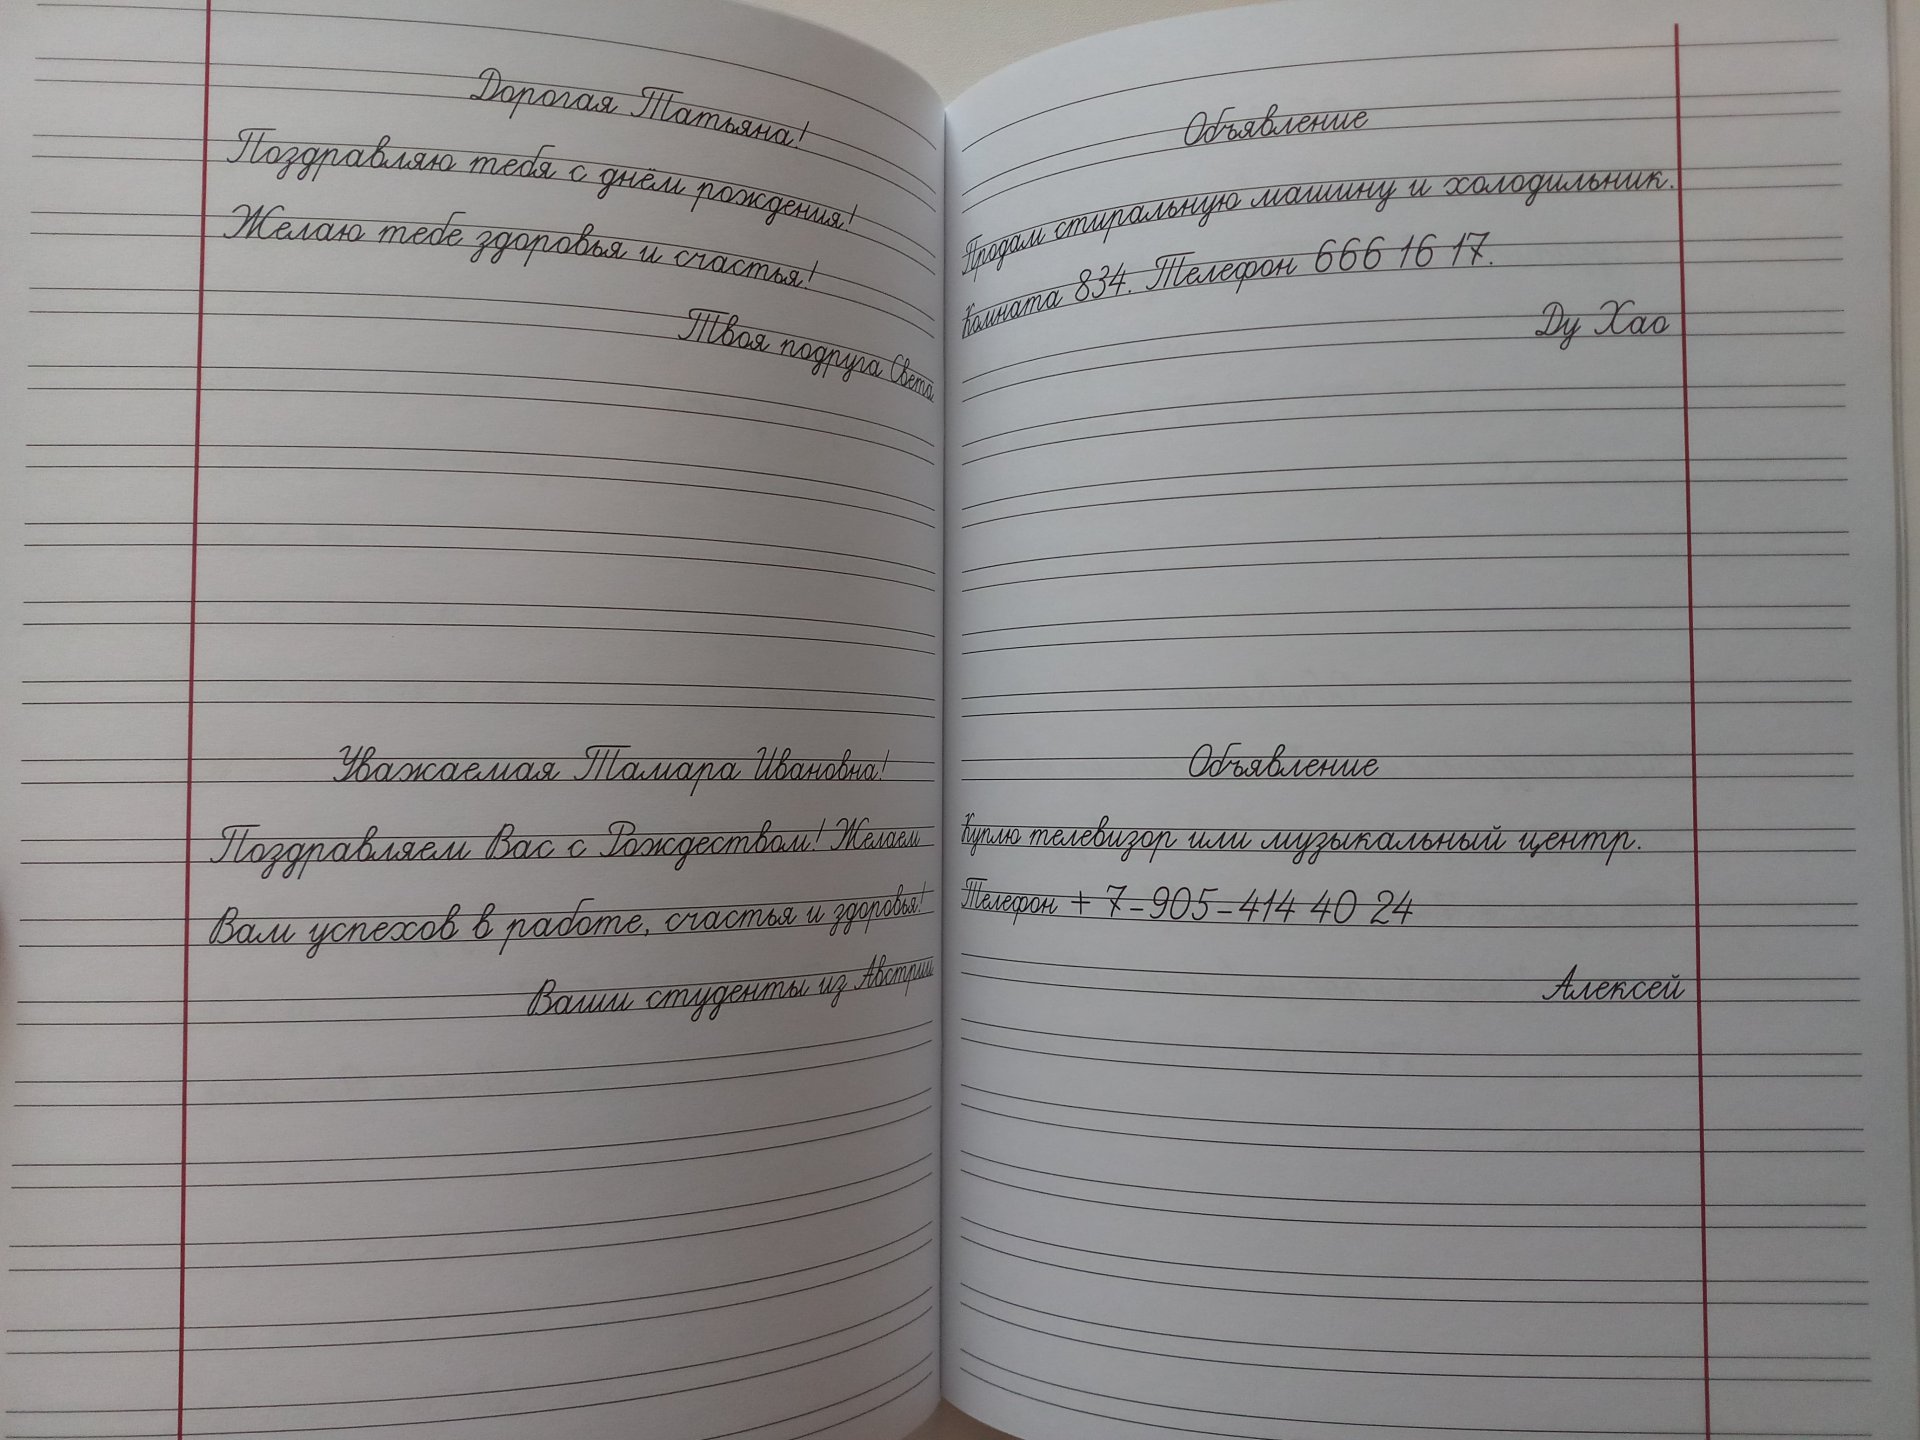 Дорогая Татьяна!
Поздравляю тебя с днём рождения!
Желаю тебе здоровья и счастья!
Твоя подруга Света
Уважаемая Тамара Ивановна!
Поздравляем Вас с Рождеством! Желаем
Вам успехов в работе, счастья и здоровья!
Ваши студенты из Австрии
Объявление
Продам стиральную машину и холодильник.
Комната 834. Телефон 666 16 17.
Ду Хао
Объявление
Куплю телевизор или музыкальный центр.
Телефон + 7-905-414 40 24
Алексей